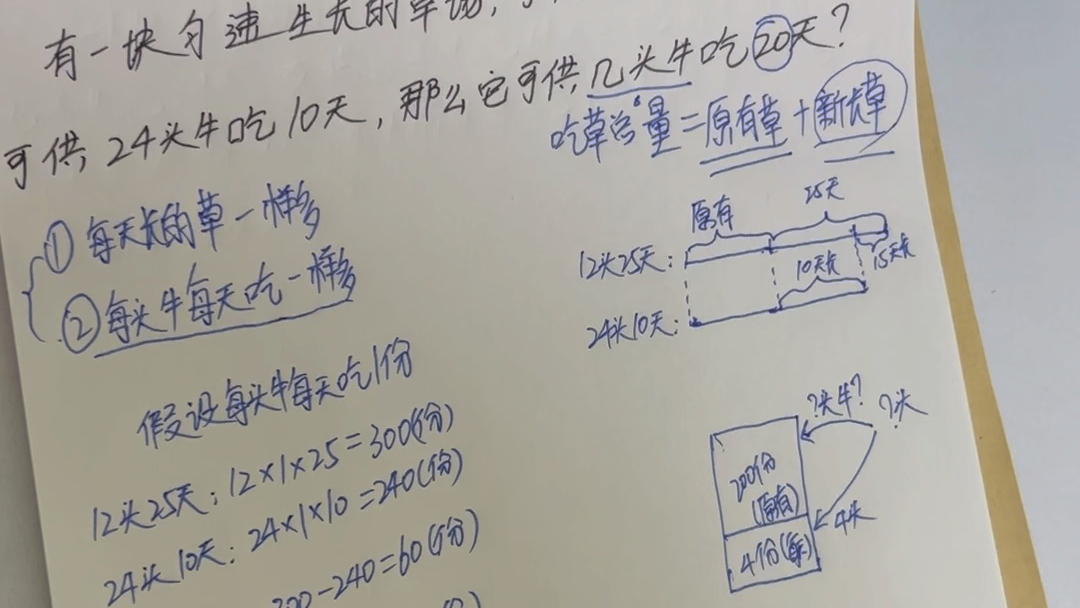 有一块匀速生长的草场,
可供24头牛吃10天,那么它可供几头牛吃20天?
吃草总量=原有草+新长草
①每天长的草一样多
②每头牛每天吃一样多
原有 25天
12头25天:
10天长 15天长
24头10天:
假设每头牛每天吃1份
12头25天:12×1×25=300(份)
24头10天:24×1×10=240(份)
300-240=60(份)
?头牛? ?头
200份
(原有)
4头
4份(每天)